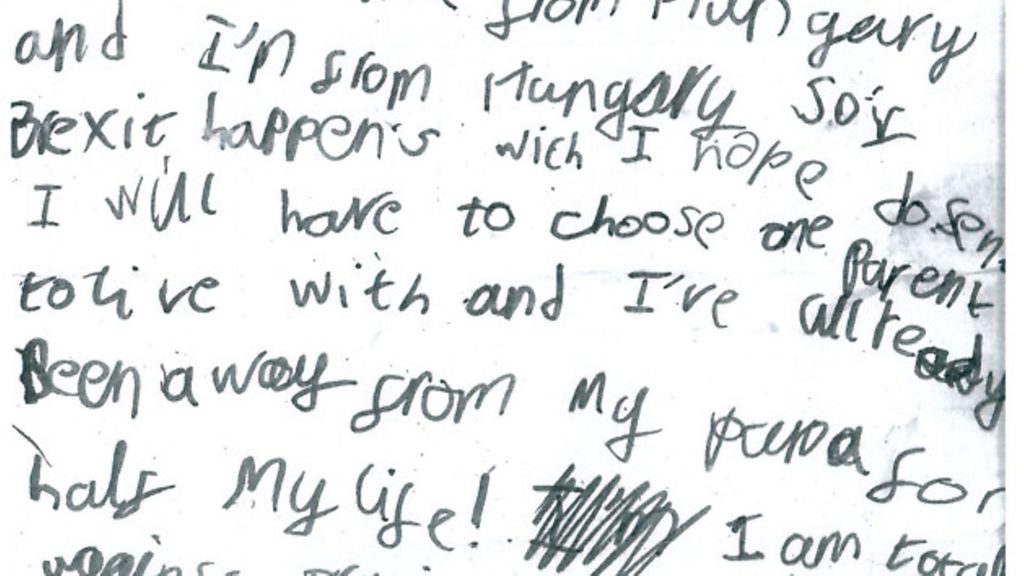 from Hungary
and I'm from Hungary So if
Brexit happen's wich I hope dosent
I will have to choose one parent
to live with and I've allready
Been away from my
half My life! I am